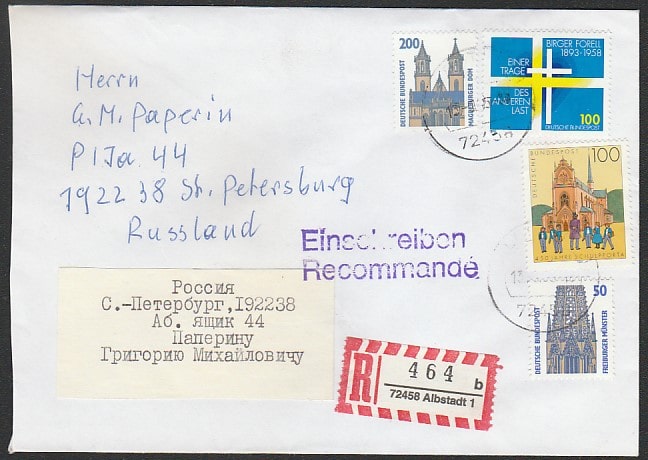 Herrn
G. M. Paperin
P/Ja 44
192238 St. Petersburg
Russland
200
DEUTSCHE BUNDESPOST
MAGDEBURGER DOM
BIRGER FORELL
1893-1958
EINER
TRAGE
DES
ANDEREN
LAST
100
DEUTSCHE BUNDESPOST
72458
DEUTSCHE BUNDESPOST
100
450 JAHRE SCHULPFORTA
Einschreiben
Recommandé
72458
50
DEUTSCHE BUNDESPOST
FREIBURGER MÜNSTER
Россия
С.-Петербург,I92238
Аб. ящик 44
Паперину
Григорию Михайловичу
R
464 b
72458 Albstadt 1